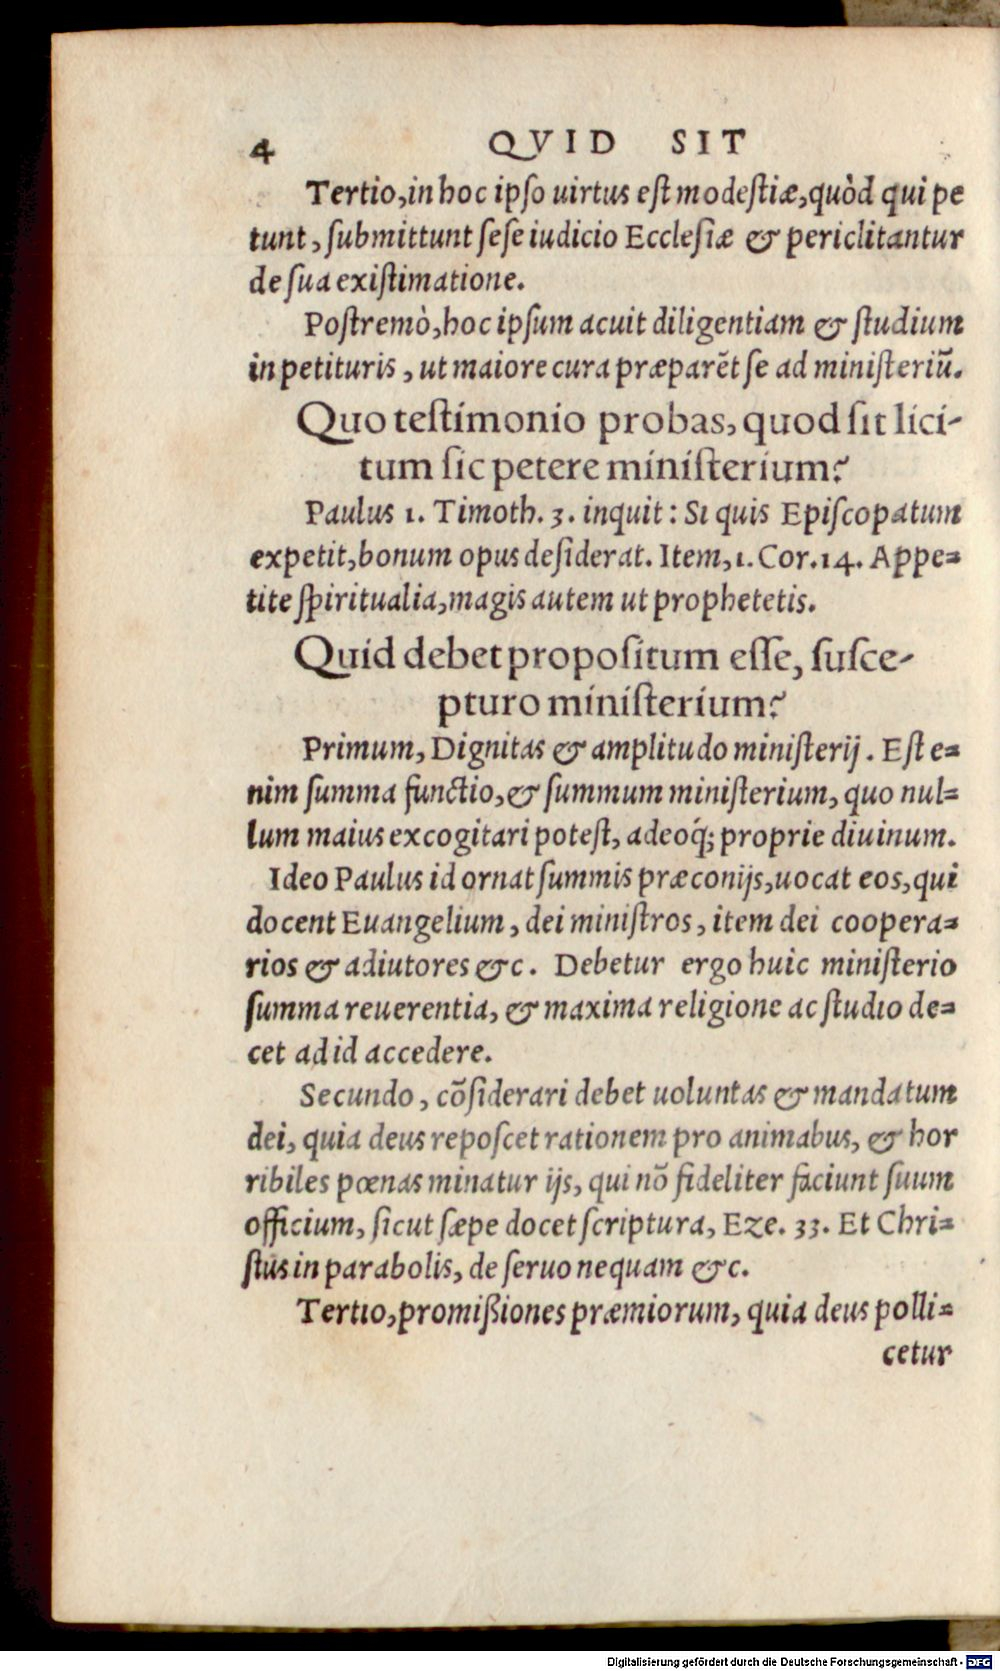 4 QVID SIT
Tertio, in hoc ipſo uirtus eſt modeſtiæ, quòd qui pe
tunt, ſubmittunt ſeſe iudicio Eccleſiæ & periclitantur
de ſua exiſtimatione.
Poſtremò, hoc ipſum acuit diligentiam & ſtudium
in petituris, ut maiore cura præparēt ſe ad miniſteriū.
Quo teſtimonio probas, quod ſit lici-
tum ſic petere miniſterium?
Paulus 1. Timoth. 3. inquit: Si quis Epiſcopatum
expetit, bonum opus deſiderat. Item, 1. Cor. 14. Appe=
tite ſpiritualia, magis autem ut prophetetis.
Quid debet propoſitum eſſe, ſuſce-
pturo miniſterium?
Primum, Dignitas & amplitudo miniſterij. Eſt e=
nim ſumma functio, & ſummum miniſterium, quo nul=
lum maius excogitari poteſt, adeoq́; proprie diuinum.
Ideo Paulus id ornat ſummis præconijs, uocat eos, qui
docent Euangelium, dei miniſtros, item dei coopera=
rios & adiutores &c. Debetur ergo huic miniſterio
ſumma reuerentia, & maxima religione ac ſtudio de=
cet ad id accedere.
Secundo, cōſiderari debet uoluntas & mandatum
dei, quia deus repoſcet rationem pro animabus, & hor
ribiles pœnas minatur ijs, qui nō fideliter faciunt ſuum
officium, ſicut ſæpe docet ſcriptura, Eze. 33. Et Chri=
ſtus in parabolis, de ſeruo nequam &c.
Tertio, promißiones præmiorum, quia deus polli=
cetur
Digitalisierung gefördert durch die Deutsche Forschungsgemeinschaft - DFG